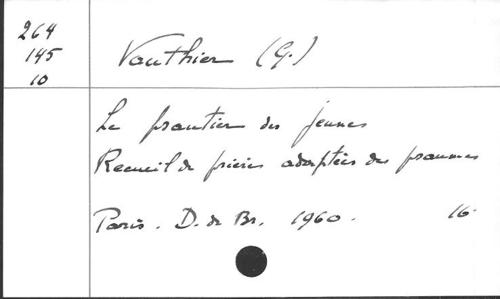 264
145
10
Vauthier (G.)
Le psautier des jeunes
Recueil de prières adaptées des psaumes
Paris. D. de Br. 1960. 16